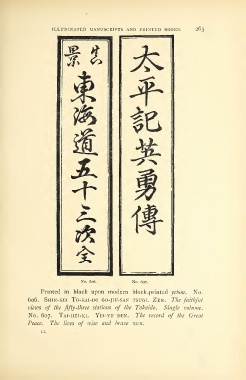 ILLUMINATED MANUSCRIPTS AND PRINTED BOOKS. 263
太平記英勇傳
真景
東海道五十三次全
No. 606. No. 607.
Printed in black upon modern block-printed yehon. No.
606. SHIN-KEI TO-KAI-DO GO-JIU-SAN TSUGI. ZEN. The faithful
views of the fifty-three stations of the Tokaido. Single volume.
No. 607. TAI-HEI-KI. YEI-YU DEN. The record of the Great
Peace. The lives of wise and brave men.